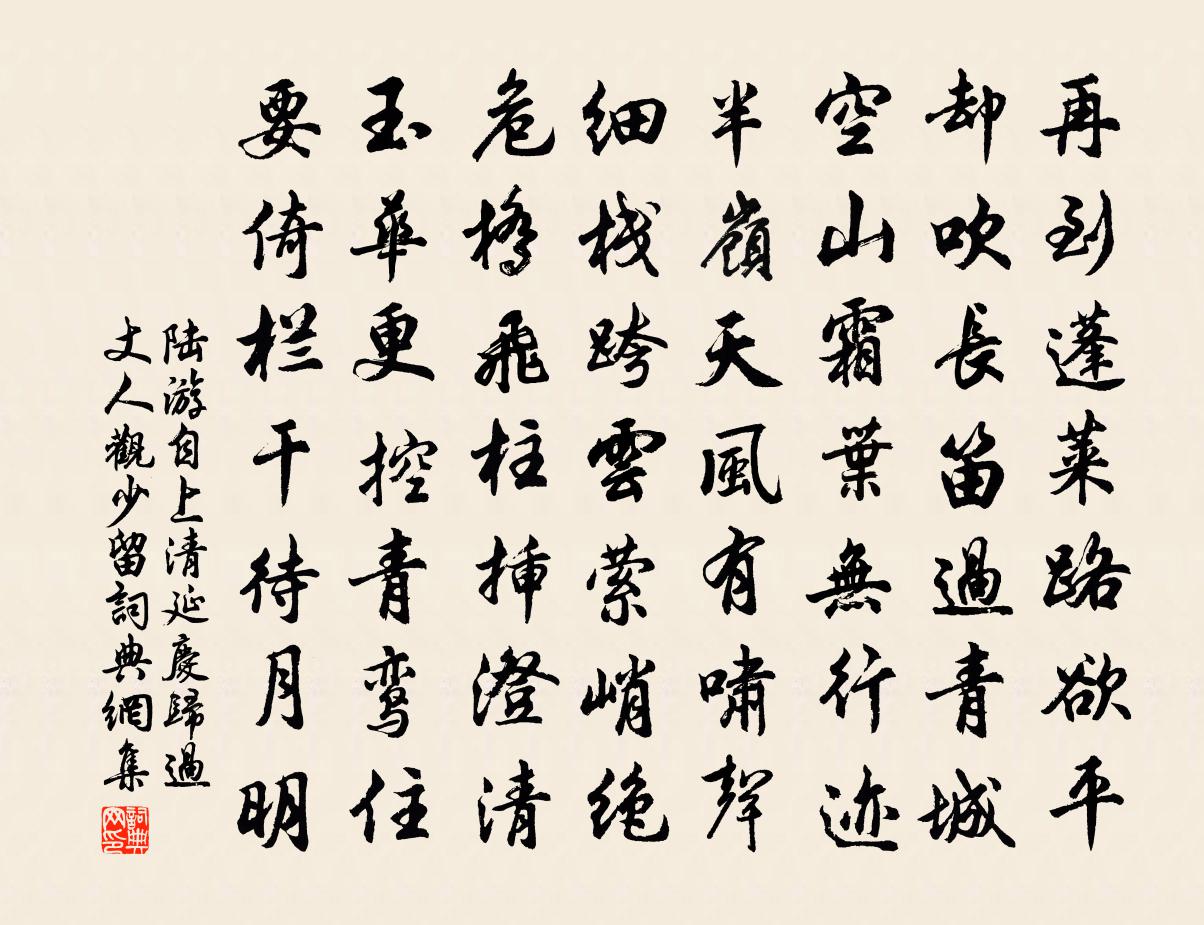 再到蓬莱路欲平
却吹長笛過青城
空山霜葉無行迹
半嶺天風有嘯聲
细栈跨雲萦峭绝
危橋飛柱插澄清
玉華更控青鸾住
要倚栏干待月明
陆游自上清延慶歸過
丈人觀少留詞典網集
詞典
网印